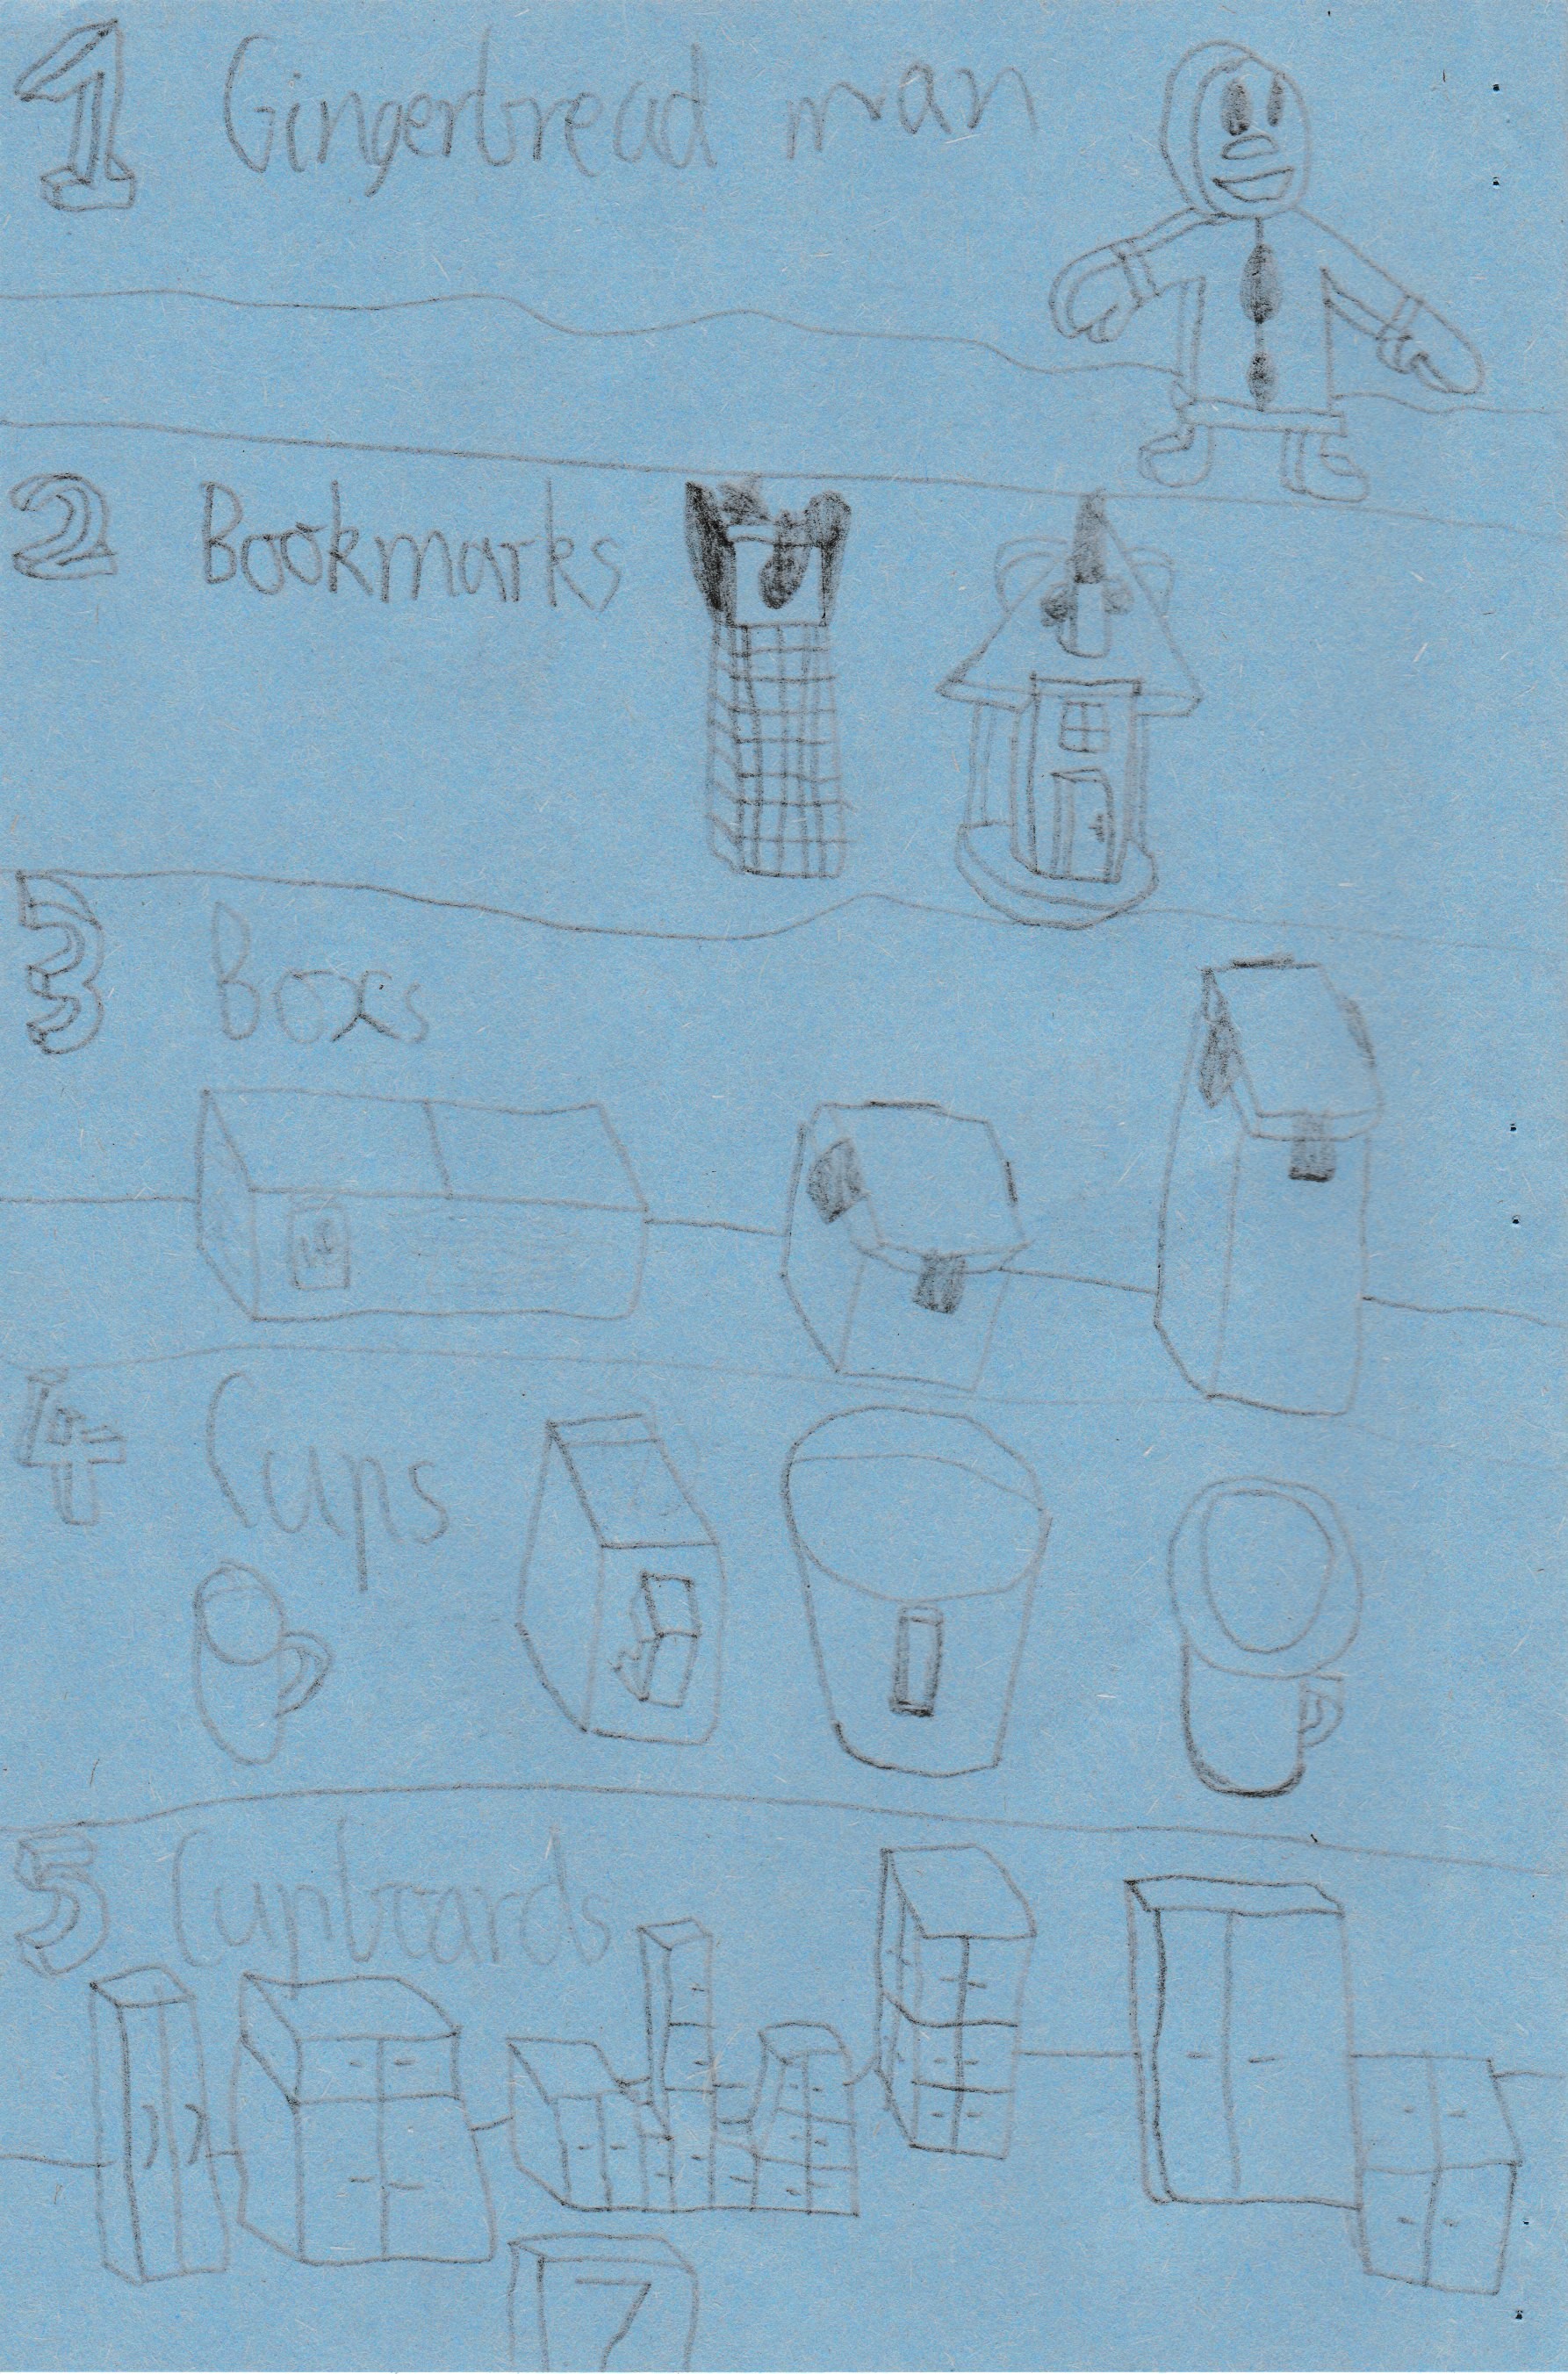 1 Gingerbread man
2 Bookmarks
3 Boxs
4 Cups
5 Cupboards
7